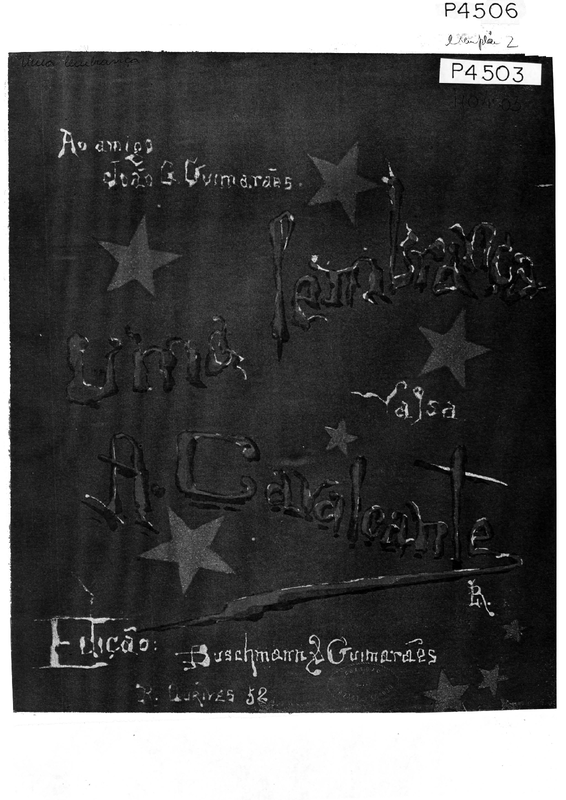 P4506
exemplar 2
P4503
Ao amigo
João G. Guimarães.
Uma lembrança
Valsa
A. Cavalcante
R.
Edição: Buschmann & Guimarães
R. OURIVES 52